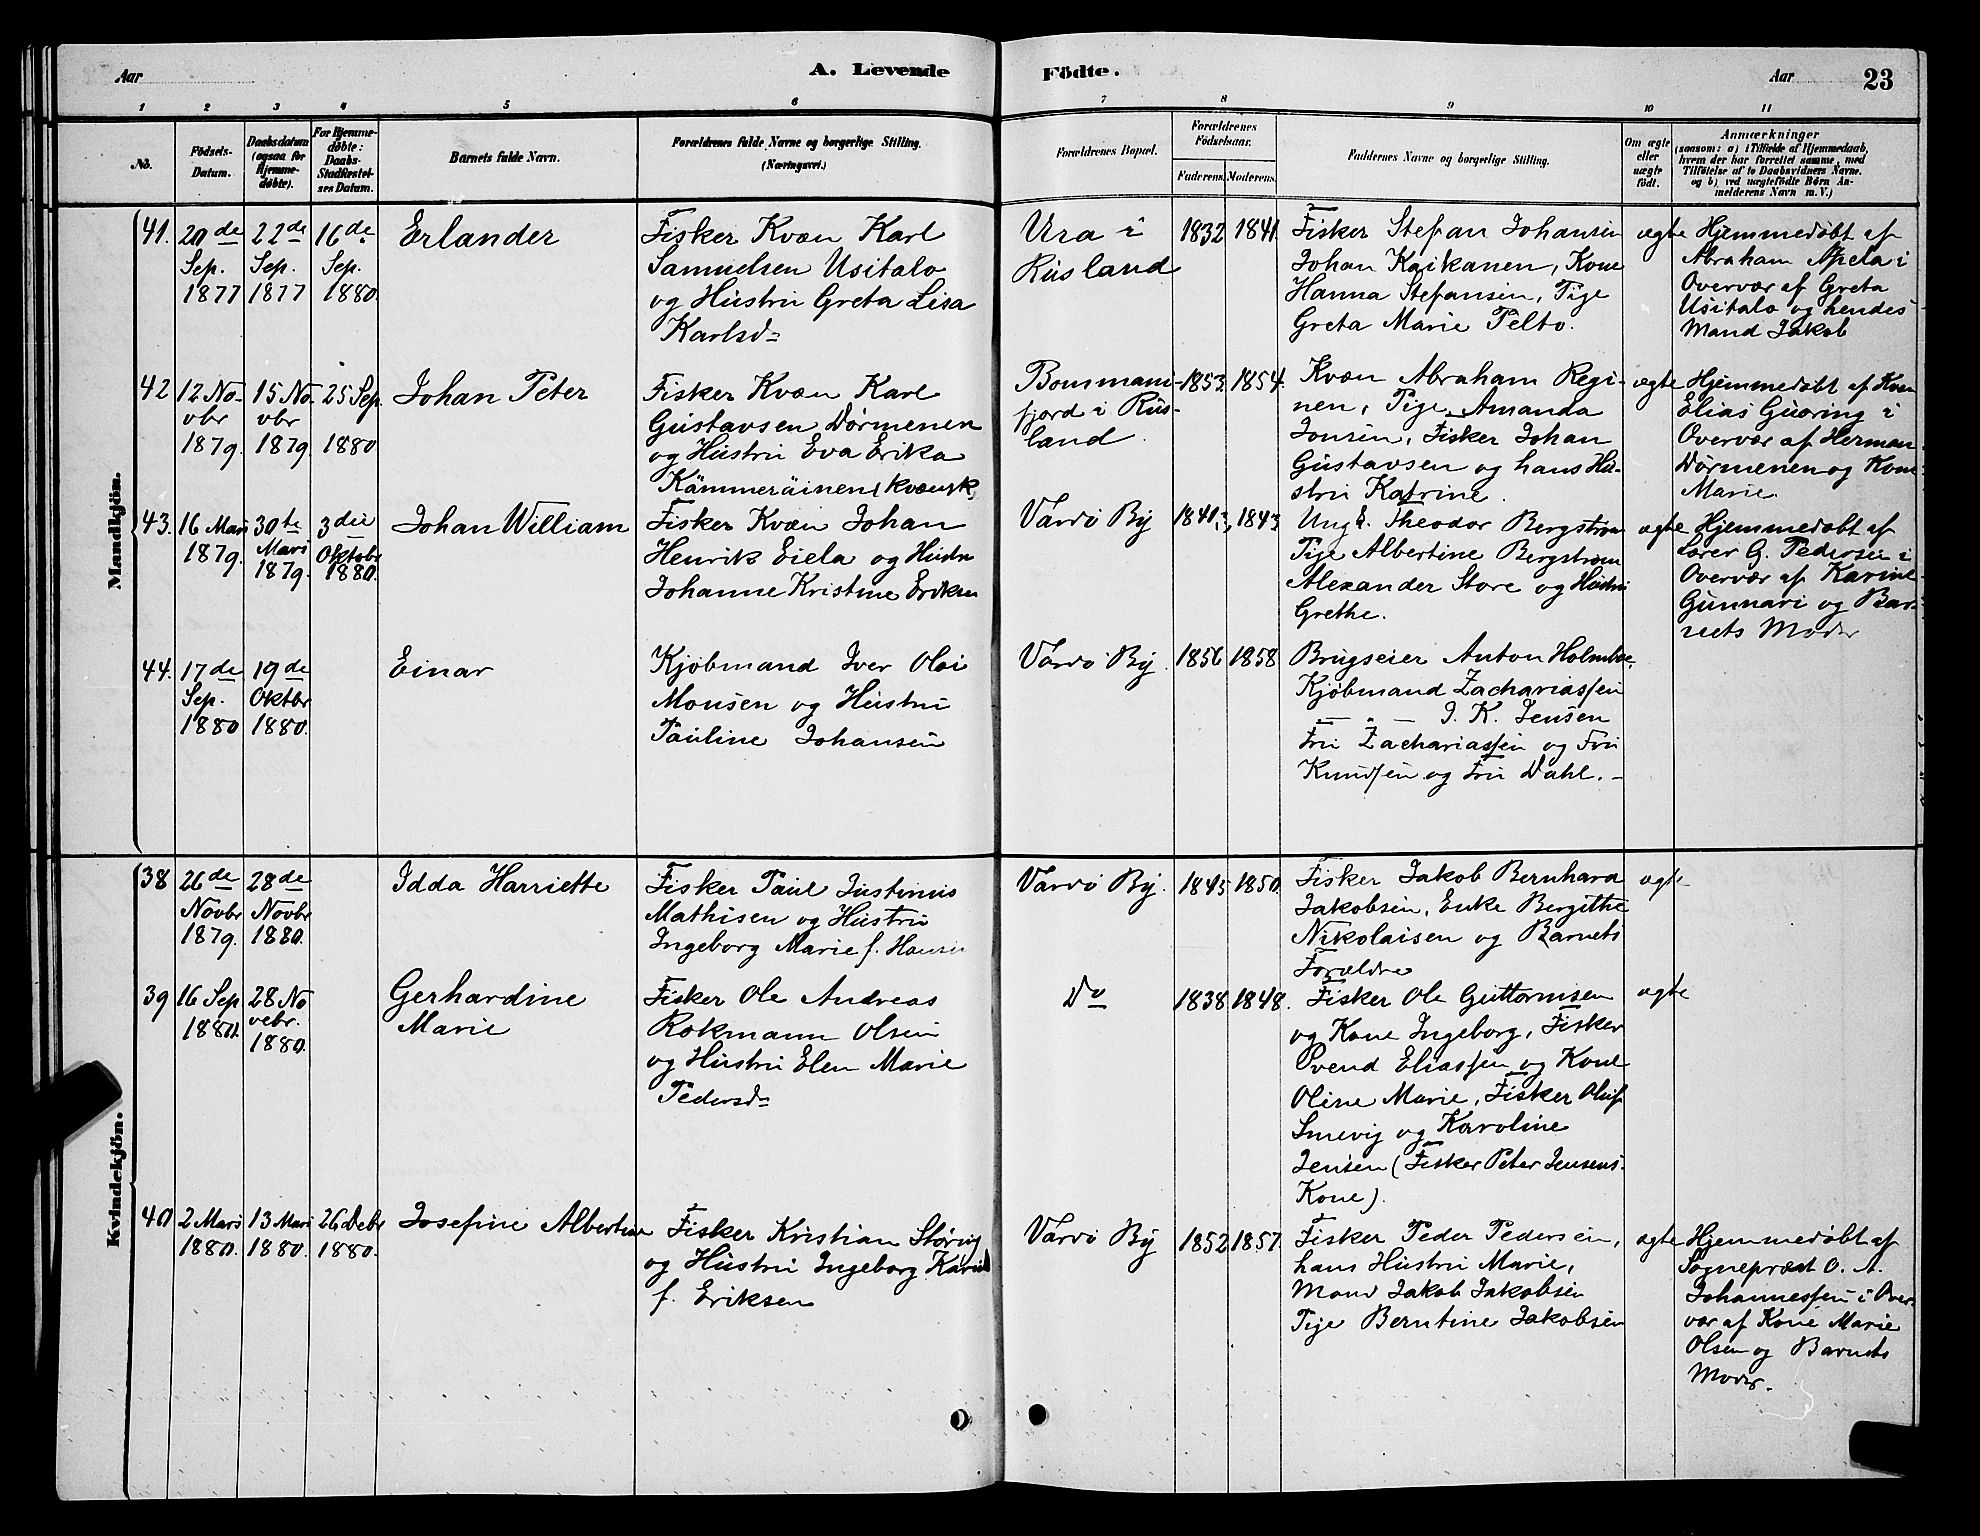 Aar
A. Levende
Födte.
Aar
23
1
2
3
4
5
6
7
8
9
10
11
No.
Födsels-
Datum.
Daabsdatum
(ogsaa for
Hjemme-
döbte).
For Hjemme-
döbte:
Daabs-
Stadfæstel-
ses Datum.
Barnets fulde Navn.
Forældrenes fulde Navne og borgerlige Stilling.
(Næringsvei.)
Forældrenes Bopæl.
Forældrenes
Födselsaar.
Faderens.
Moderens.
Faddernes Navne og borgerlige Stilling.
Om ægte
eller
uægte
födt.
Anmærkninger
(saasom: a) i Tilfælde af Hjemmedaab,
hvem der har forrettet samme, med
Tilföielse af to Daabsvidners Navne.
og b) ved uægtefödte Börn An-
melderens Navn m. V.)
Mandkjön.
41.
20de
Sep.
1877
22de
Sep.
1877
16de
Sep.
1880.
Erlander
Fisker Kvæn Karl
Samuelsen Usitalo
og Hustru Greta Lisa
Karlsd
Ura i
Rusland
1832
1841.
Fisker Stefan Johansen
Johan Kaikanen, Kone
Hanna Stefansen, Pige
Greta Marie Pelto.
ægte
Hjemmedøbt af
Abraham Apela i
Overvær af Greta
Usitalo og hendes
Mand Jakob
42
12 No-
vbr
1879.
15 No-
vbr
1879.
25 Sep.
1880
Johan Peter
Fisker Kvæn Karl
Gustavsen Dørmenen
og Hustru Eva Erika
Kämmeräinen (kvænsk)
Bommani-
fjord i Rus-
land.
1853.
1854.
Kvæn Abraham Regi-
nen, Pige Amanda
Jonsen, Fisker Johan
Gustavsen og hans Hu-
stru Katrine.
ægte
Hjemmedøbt af Kvæn
Elias Guoring i
Overvær af Herman
Dørmenen og Kone
Marie.
43.
16 Mars
1879.
30te
Mars
1879.
3die
Oktobr
1880.
Johan William
Fisker Kvæn Johan
Henrik Eiela og Hustru
Johanne Kristine Eriksen
Vardø By
1841
1843
Ung. Theodor Bergstrøm
Pige Albertine Bergstrøm
Alexander Store og Hustru
Grethe.
ægte
Hjemmedøbt af
Lærer G. Pedersen i
Overvær af Karine
Gunnari og Bar-
nets Moder
44.
17de
Sep.
1880
19de
Oktbr
1880.
Einar
Kjøbmand Iver Olai
Monsen og Hustru
Pauline Johansen
Vardø By.
1856
1858
Brugseier Anton Holmboe,
Kjøbmand Zachariassen
— „ — J. K. Jensen
Fru Zachariassen og Fru
Knudsen og Fru Dahl. –
Kvindekjön.
38
26de
Novbr
1879.
28de
Novbr
1880.
Idda Harriette
Fisker Paul Justinus
Mathisen og Hustru
Ingeborg Marie f. Hansen
Vardø By.
1845
1850.
Fisker Jakob Bernhard
Jakobsen, Enke Bergithe
Nikolaisen og Barnets
Forældre
ægte
39
16 Sep
1880.
28 No
vebr.
1880.
Gerhardine
Marie
Fisker Ole Andreas
Rokmann Olsen
og Hustru Elen Marie
Pedersd
Do
1838
1848.
Fisker Ole Guttormsen
og Kone Ingeborg, Fisker
Svend Eliassen og Kone
Oline Marie, Fisker Oluf
Smevig og Karoline
Jensen (Fisker Peter Jensens
Kone).
ægte
40
2 Mars
1880.
13 Mars
1880.
26 Debr
1880.
Josefine Albertine
Fisker Kristian Størvig
og Hustru Ingeborg Karine
f. Eriksen
Vardø By
1852
1857.
Fisker Peder Pedersen,
hans Hustru Marie,
Mand Jakob Jakobsen
Pige Berntine Jakobsen
ægte
Hjemmedøbt af
Sognepræst O. A.
Johannessen i Over-
vær af Kone Marie
Olsen og Barnets
Moder.